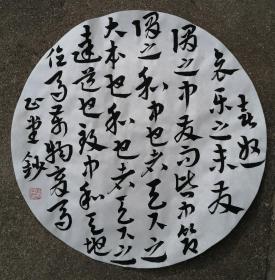 喜怒
哀乐之未发
谓之中发而皆中节
谓之和中也者天下之
大本也和也者天下之
達道也致中和天地
位焉萬物育焉
鈔